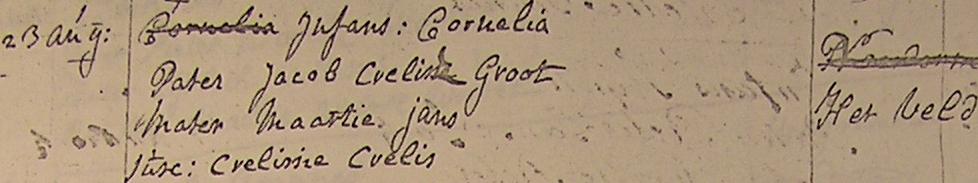 23 aug: Cornelia Jnfans: Cornelia
Pater Jacob Crelisz Groot
Mater Maartie jans
Het Veld
Susc: Crelisie Crelis